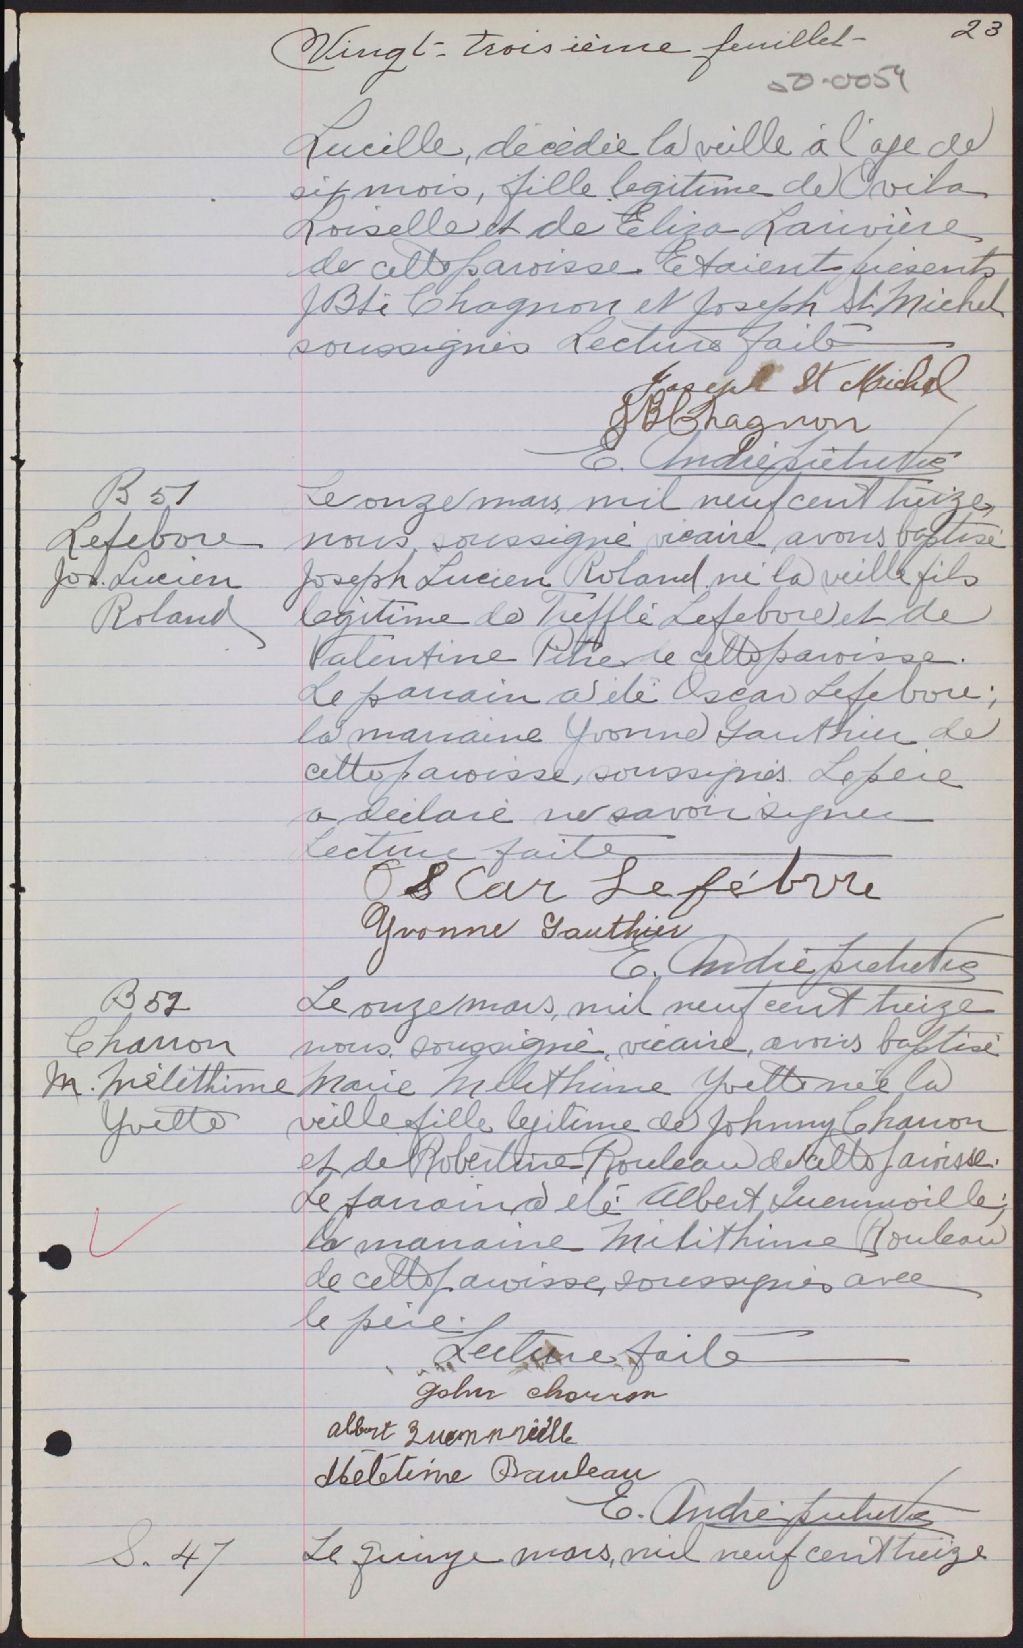 23
Vingt-troisième feuillet
50-0054
Lucille, décédée la veille à l'age de
six mois, fille legitime de Ovila
Loiselle et de Eliza Larivière
de cette paroisse. Etaient présents
JBte Chagnon et Joseph St Michel
soussignés Lecture faite
Joseph St Michel
JB Chagnon
E. André ptre Vic
B 51
Lefebvre
Jos. Lucien
Roland
Le onze mars, mil neuf cent treize,
nous, soussigné vicaire avons baptisé
Joseph Lucien Roland né la veille fils
légitime de Trefflé Lefebvre et de
Valentine Petrie de cette paroisse.
Le parrain a été Oscar Lefebvre;
la marraine Yvonne Gauthier de
cette paroisse, soussignés. Le père
a déclaré ne savoir signer
Lecture faite
Oscar Lefébvre
Yvonne Gauthier
E. André ptre Vic
B 52
Charron
M. Mélithime
Yvette
Le onze mars, mil neuf cent treize
nous, soussigné, vicaire, avons baptisé
Marie Mélithime Yvette née la
veille fille legitime de Johnny Charron
et de Robertine Rouleau de cette paroisse.
Le parrain a été Albert Quenneville;
la marraine Mélithime Rouleau
de cette paroisse, soussignés avec
le père.
Lecture faite
John Charron
Albert Quenneville
Mélétime Rauleau
E. André ptre Vic
S. 47
Le quinze mars, mil neuf cent treize